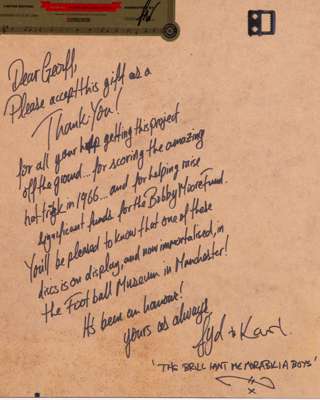 LIMITED EDITION
Dear Geoff,
Please accept this gift as a
Thank-You!
for all your help getting this project
off the ground... for scoring the amazing
hat trick in 1966... and for helping raise
significant funds for the Bobby Moore Fund.
You'll be pleased to know that one of these
discs is on display, and now immortalised, in
the Football Museum in Manchester!
It's been an honour!
yours as always
Syd & Karl.
'THE BRILLIANT MEMORABILIA BOYS'
x